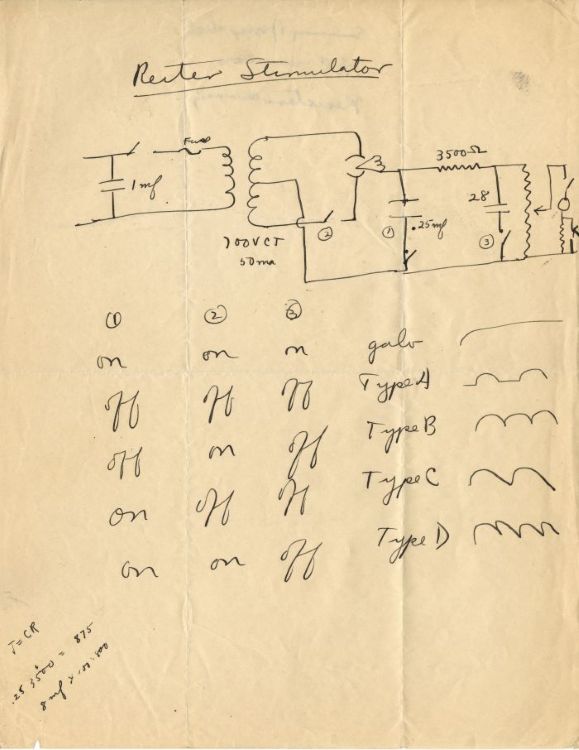 Reiter Stimulator
Fuse
1 mf
700VCT
50 ma
3500Ω
28
.25mf
①
②
③
K
① ② ③
on on on galv
off off off Type A
off on off Type B
on off off Type C
on on off Type D
T=CR
.25 3500 = 875
8 mf x